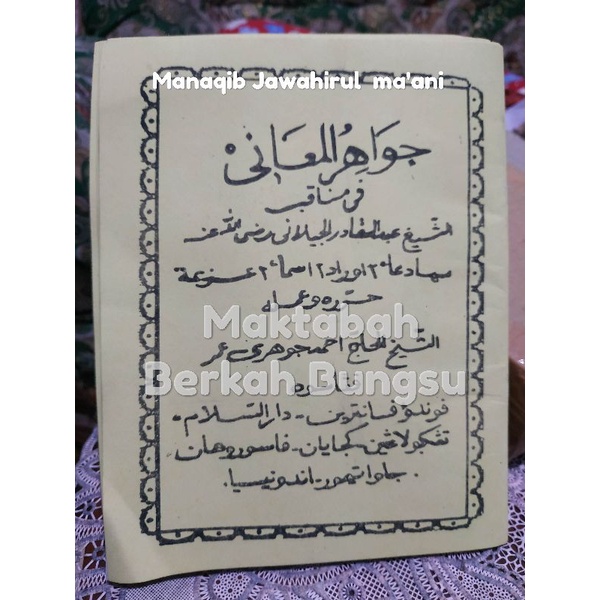 Manaqib Jawahirul ma'ani
جَوَاهِرُ المَعَانِىْ
فى مناقب
الشّيخ عبدالقادر الجيلانى رضى الله عنه
دعا٢ اوراد٢ اسما٢ عزيمة
Maktabah
الشّيخ الحاج احمد جوهرى عمر
Berkah Bungsu
فوندوق فسانترين - دار السّلام -
تڠكولاڠين - كجايان - فاسوروهان
جاوا تيمور - اندونيسيا .